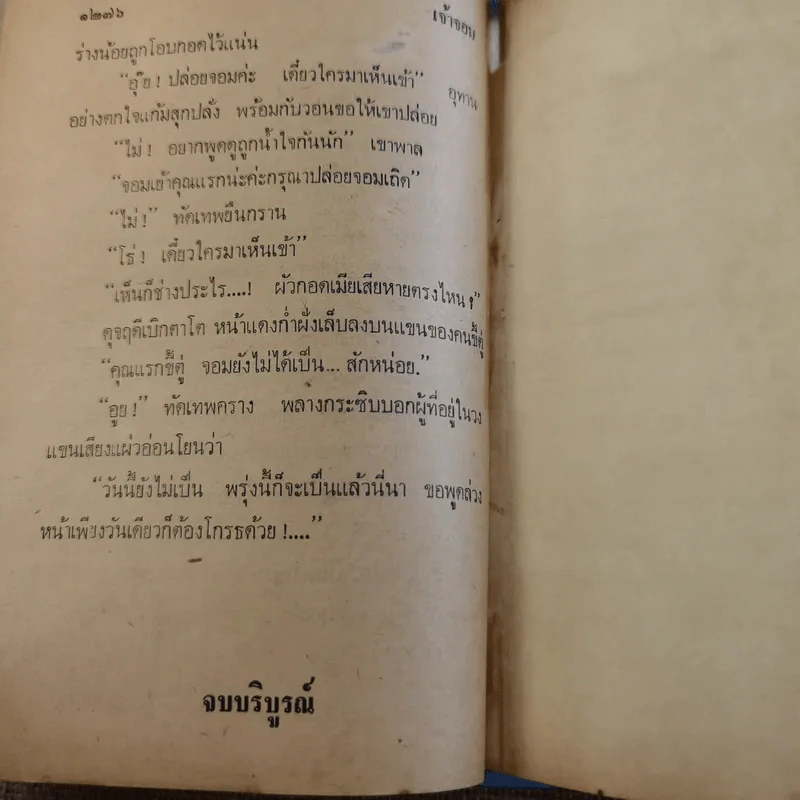 ๑๒๗๖
เจ้าจอม
ร่างน้อยถูกโอบกอดไว้แน่น
“อุ๊ย! ปล่อยจอมค่ะ เดี๋ยวใครมาเห็นเข้า” อุทาน
อย่างตกใจแก้มสุกปลั่ง พร้อมกับวอนขอให้เขาปล่อย
“ไม่! อยากพูดดูถูกน้ำใจกันนัก” เขาพาล
“จอมเย้าคุณแรกน่ะค่ะกรุณาปล่อยจอมเถิด”
“ไม่!” ทัดเทพยืนกราน
“โธ่! เดี๋ยวใครมาเห็นเข้า”
“เห็นก็ช่างประไร....! ผัวกอดเมียเสียหายตรงไหน?”
ดุจฤดีเบิกตาโต หน้าแดงก่ำฝังเล็บลงบนแขนของคนขี้ตู่
“คุณแรกขี้ตู่ จอมยังไม่ได้เป็น... สักหน่อย.”
“อูย!” ทัดเทพคราง พลางกระซิบบอกผู้ที่อยู่ในวง
แขนเสียงแผ่วอ่อนโยนว่า
“วันนี้ยังไม่เป็น พรุ่งนี้ก็จะเป็นแล้วนี่นา ขอพูดล่วง
หน้าเพียงวันเดียวก็ต้องโกรธด้วย!....”
จบบริบูรณ์